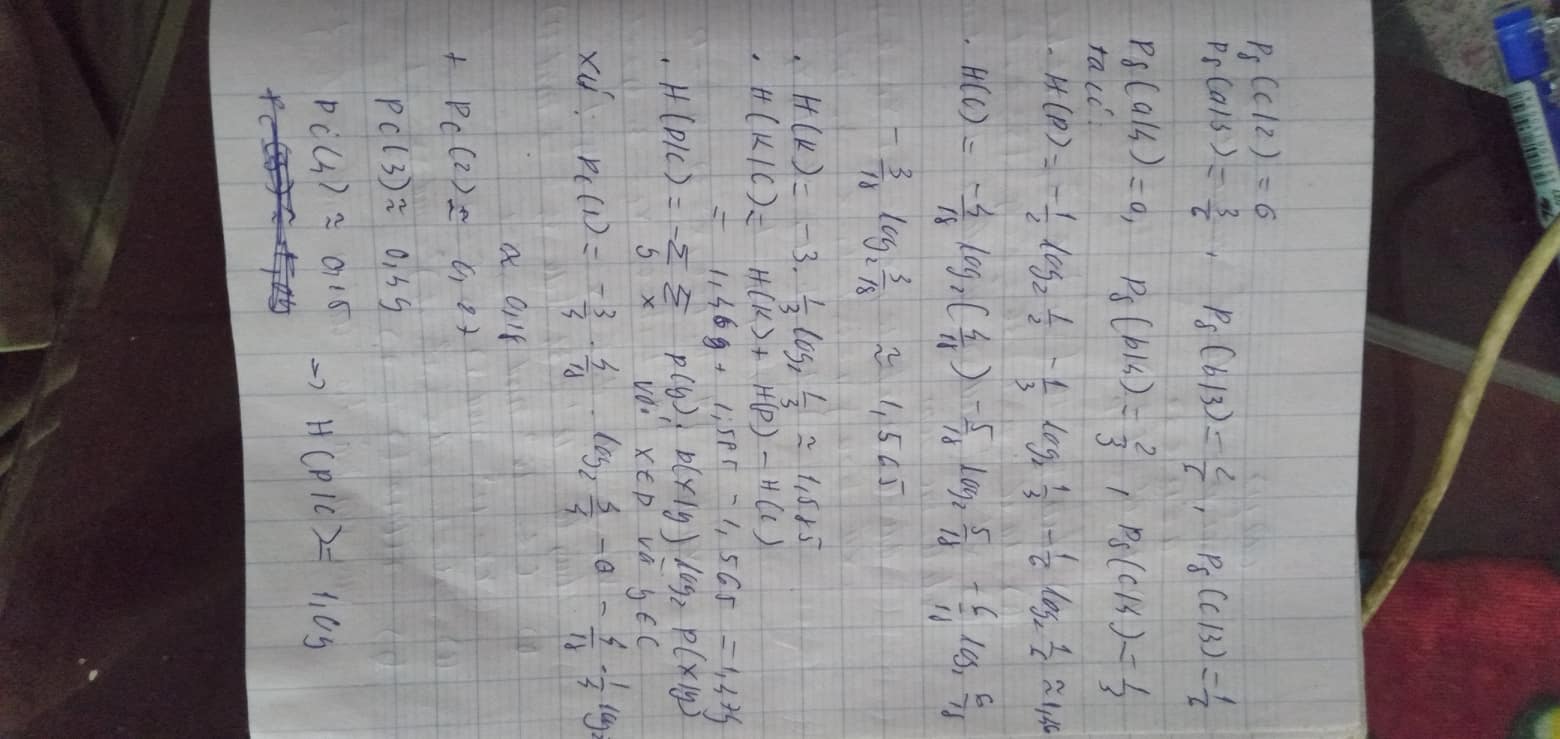 P_B(c|2) = 6
P_B(a|3) = 3/6, P_B(b|3) = 2/6, P_B(c|3) = 1/6
P_B(a|4) = 0, P_B(b|4) = 2/3, P_B(c|4) = 1/3
ta có:
• H(P) = -1/2 log₂ 1/2 - 1/3 log₂ 1/3 - 1/6 log₂ 1/6 ≈ 1,46
• H(C) = -4/18 log₂ (4/18) - 5/18 log₂ 5/18 - 6/18 log₂ 6/18
- 3/18 log₂ 3/18 ≈ 1,565
• H(K) = -3. 1/3 log₂ 1/3 ≈ 1,585
• H(K|C) = H(K) + H(P) - H(C)
= 1,469 + 1,585 - 1,565 = 1,479
• H(P|C) = -Σ Σ p(y). p(x|y) log₂ p(x|y)
y x với x∈P và y∈C
xét: PC(1) = -3/4 . 4/18 . log₂ 3/4 - 0 - 4/18 . 1/4 log₂
≈ 0,18
+ PC(2) ≈ 0,27
PC(3) ≈ 0,49
PC(4) ≈ 0,15 => H(P|C) = 1,09